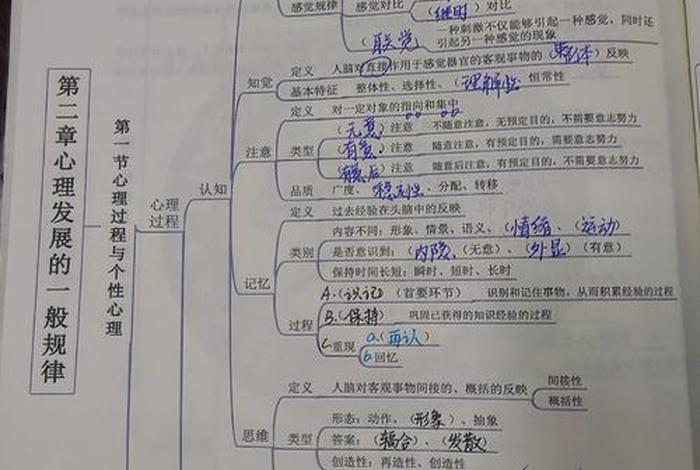 感觉规律
感觉对比
(继时)对比
(联觉)
一种刺激不仅能够引起一种感觉，同时还
引起另一种感觉的现象
知觉
定义 人脑对直接作用于感觉器官的客观事物的(整体)反映
基本特征 整体性、选择性、(理解性)恒常性
注意
定义 对一定对象的指向和集中
类型
(无意)注意 不随意注意，无预定目的，不需要意志努力
(有意)注意 随意注意，有预定目的，需要意志努力
(有意后)注意 随意后注意，有预定目的，不需要意志努力
品质 广度、稳定性、分配、转移
第二章心理发展的一般规律
第一节心理过程与个性心理
心理
过程
认知
记忆
定义 过去经验在头脑中的反映
类别
内容不同：形象、情景、语义、(情绪、(运动)
是否意识到：(内隐、(无意)、(外显)(有意)
保持时间长短：瞬时、短时、长时
过程
A.(识记)(首要环节) 识别和记住事物，从而积累经验的过程
B.(保持) 巩固已获得的知识经验的过程
C.重现
a.(再认)
b.回忆
思维
定义 人脑对客观事物间接的、概括的反映
间接性
概括性
类型
形态：动作、(形象)、抽象
答案：(辐合)、(发散)
创造性：再造性、创造性